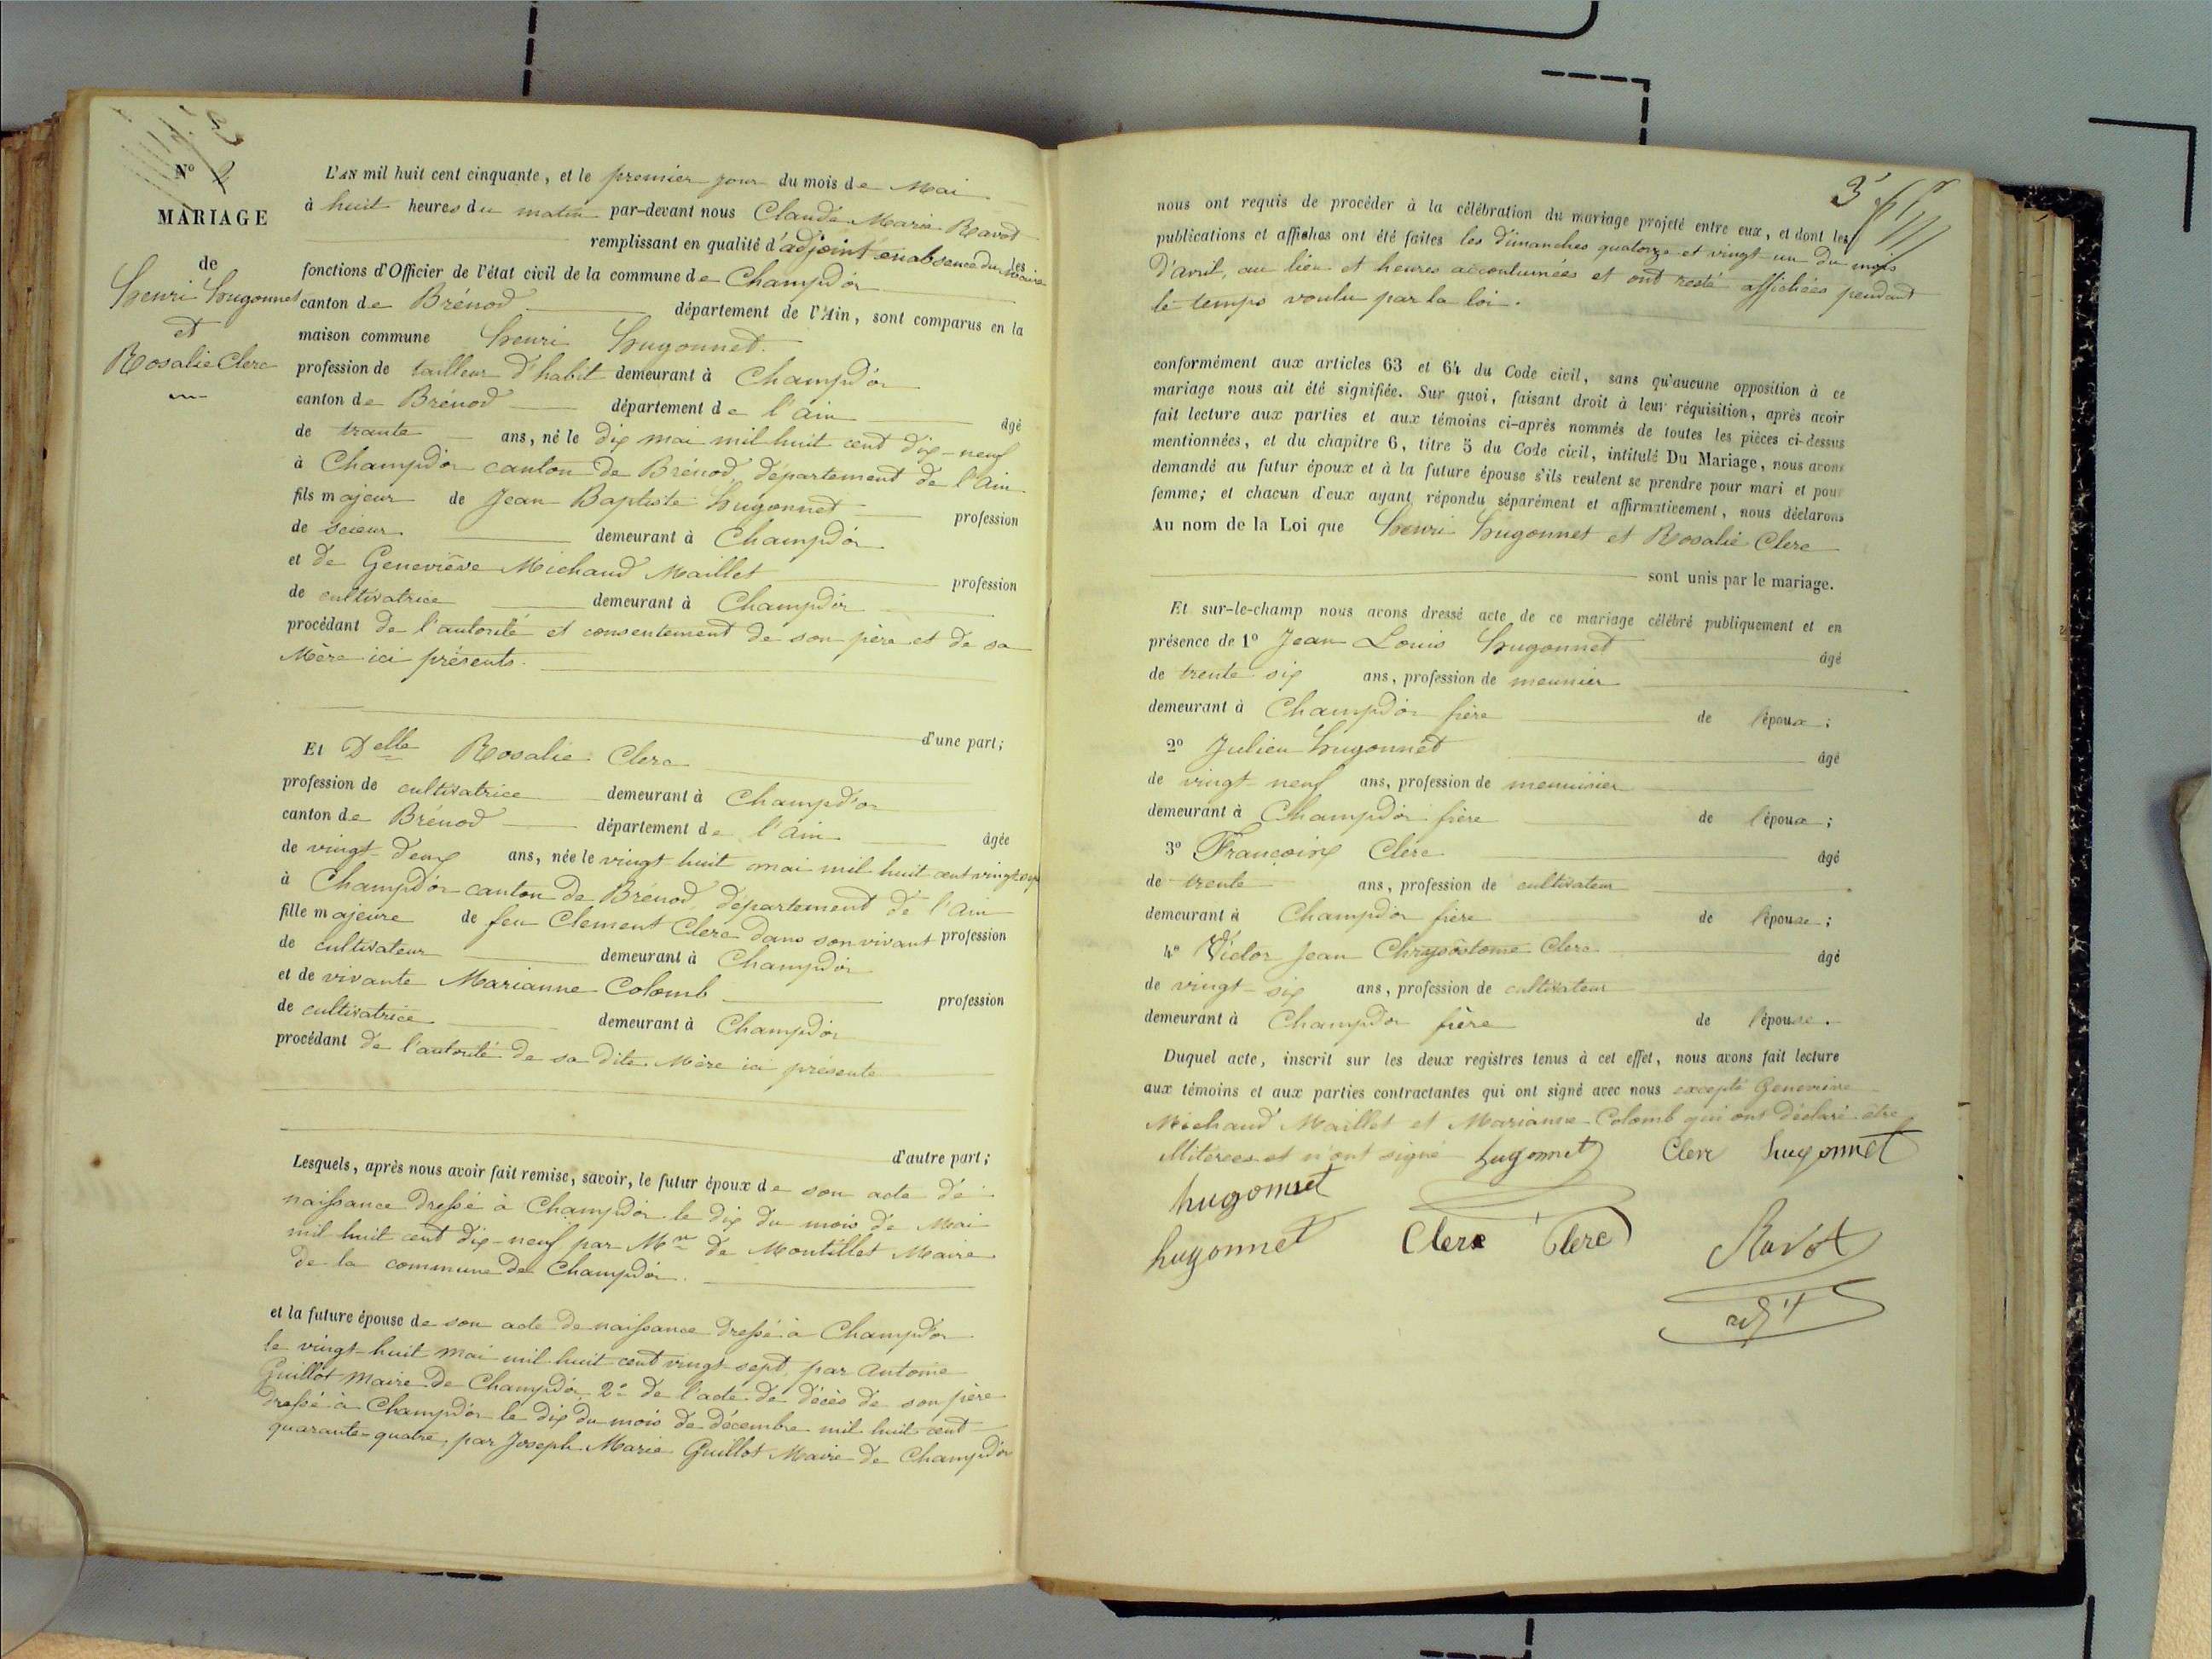 N° 2
MARIAGE
de
henri hugonnet
et
Rosalie Clerc
L'AN mil huit cent cinquante, et le premier jour du mois de Mai
à huit heures du matin par-devant nous Claude Marie Ravot
remplissant en qualité d'adjoint en absence du Maire les
fonctions d'Officier de l'état civil de la commune de Champd'or
canton de Brénod département de l'Ain, sont comparus en la
maison commune henri hugonnet
profession de tailleur d'habit demeurant à Champd'or
canton de Brénod département de l'ain âgé
de trante ans, né le dix mai mil huit cent dix-neuf
à Champd'or canton de Brénod département de l'ain
fils majeur de Jean Baptiste hugonnet profession
de scieur demeurant à Champd'or
et de Geneviève Michaud Maillet profession
de cultivatrice demeurant à Champd'or
procédant de l'autorité et consentement de son père et de sa
Mère ici présents.
d'une part;
Et Delle Rosalie Clerc
profession de cultivatrice demeurant à Champd'or
canton de Brénod département de l'ain âgée
de vingt-deux ans, née le vingt huit mai mil huit cent vingt sept
à Champd'or canton de Brénod département de l'ain
fille majeure de feu Clement Clerc dans son vivant profession
de cultivateur demeurant à Champd'or
et de vivante Marianne Colomb profession
de cultivatrice demeurant à Champd'or
procédant de l'autorité de sa dite Mère ici présente
d'autre part;
Lesquels, après nous avoir fait remise, savoir, le futur époux de son acte de
naissance dressé à Champd'or le dix du mois de Mai
mil huit cent dix-neuf par Mr de Montillet Maire
de la commune de Champd'or.
et la future épouse de son acte de naissance dressé à Champd'or
le vingt-huit mai mil huit cent vingt-sept par antoine
Guillot Maire de Champd'or, 2° de l'acte de décès de son père
dressé à Champd'or le dix du mois de décembre mil huit cent
quarante-quatre, par Joseph Marie Guillot Maire de Champd'or
3
nous ont requis de procéder à la célébration du mariage projeté entre eux, et dont les
publications et affiches ont été faites les dimanches quatorze et vingt-un du mois
d'avril, au lieu et heures accoutumées et ont resté affichées pendant
le temps voulu par la loi.
conformément aux articles 63 et 64 du Code civil, sans qu'aucune opposition à ce
mariage nous ait été signifiée. Sur quoi, faisant droit à leur réquisition, après avoir
fait lecture aux parties et aux témoins ci-après nommés de toutes les pièces ci-dessus
mentionnées, et du chapitre 6, titre 5 du Code civil, intitulé Du Mariage, nous avons
demandé au futur époux et à la future épouse s'ils veulent se prendre pour mari et pour
femme; et chacun d'eux ayant répondu séparément et affirmativement, nous déclarons
Au nom de la Loi que henri hugonnet et Rosalie Clerc
sont unis par le mariage.
Et sur-le-champ nous avons dressé acte de ce mariage célébré publiquement et en
présence de 1° Jean Louis hugonnet âgé
de trente six ans, profession de meunier
demeurant à Champd'or frère de l'époux;
2° Julien hugonnet âgé
de vingt-neuf ans, profession de menuisier
demeurant à Champd'or frère de l'époux;
3° Françoix Clerc âgé
de trente ans, profession de cultivateur
demeurant à Champd'or frère de l'épouse;
4° Victor Jean Chrysostome Clerc âgé
de vingt-six ans, profession de cultivateur
demeurant à Champd'or frère de l'épouse.
Duquel acte, inscrit sur les deux registres tenus à cet effet, nous avons fait lecture
aux témoins et aux parties contractantes qui ont signé avec nous excepté Geneviève
Michaud Maillet et Marianne Colomb qui ont déclaré être
illitérées et n'ont signé hugonnet Clerc hugonnet
hugonnet
hugonnet Clerc Clerc Ravot
adjt